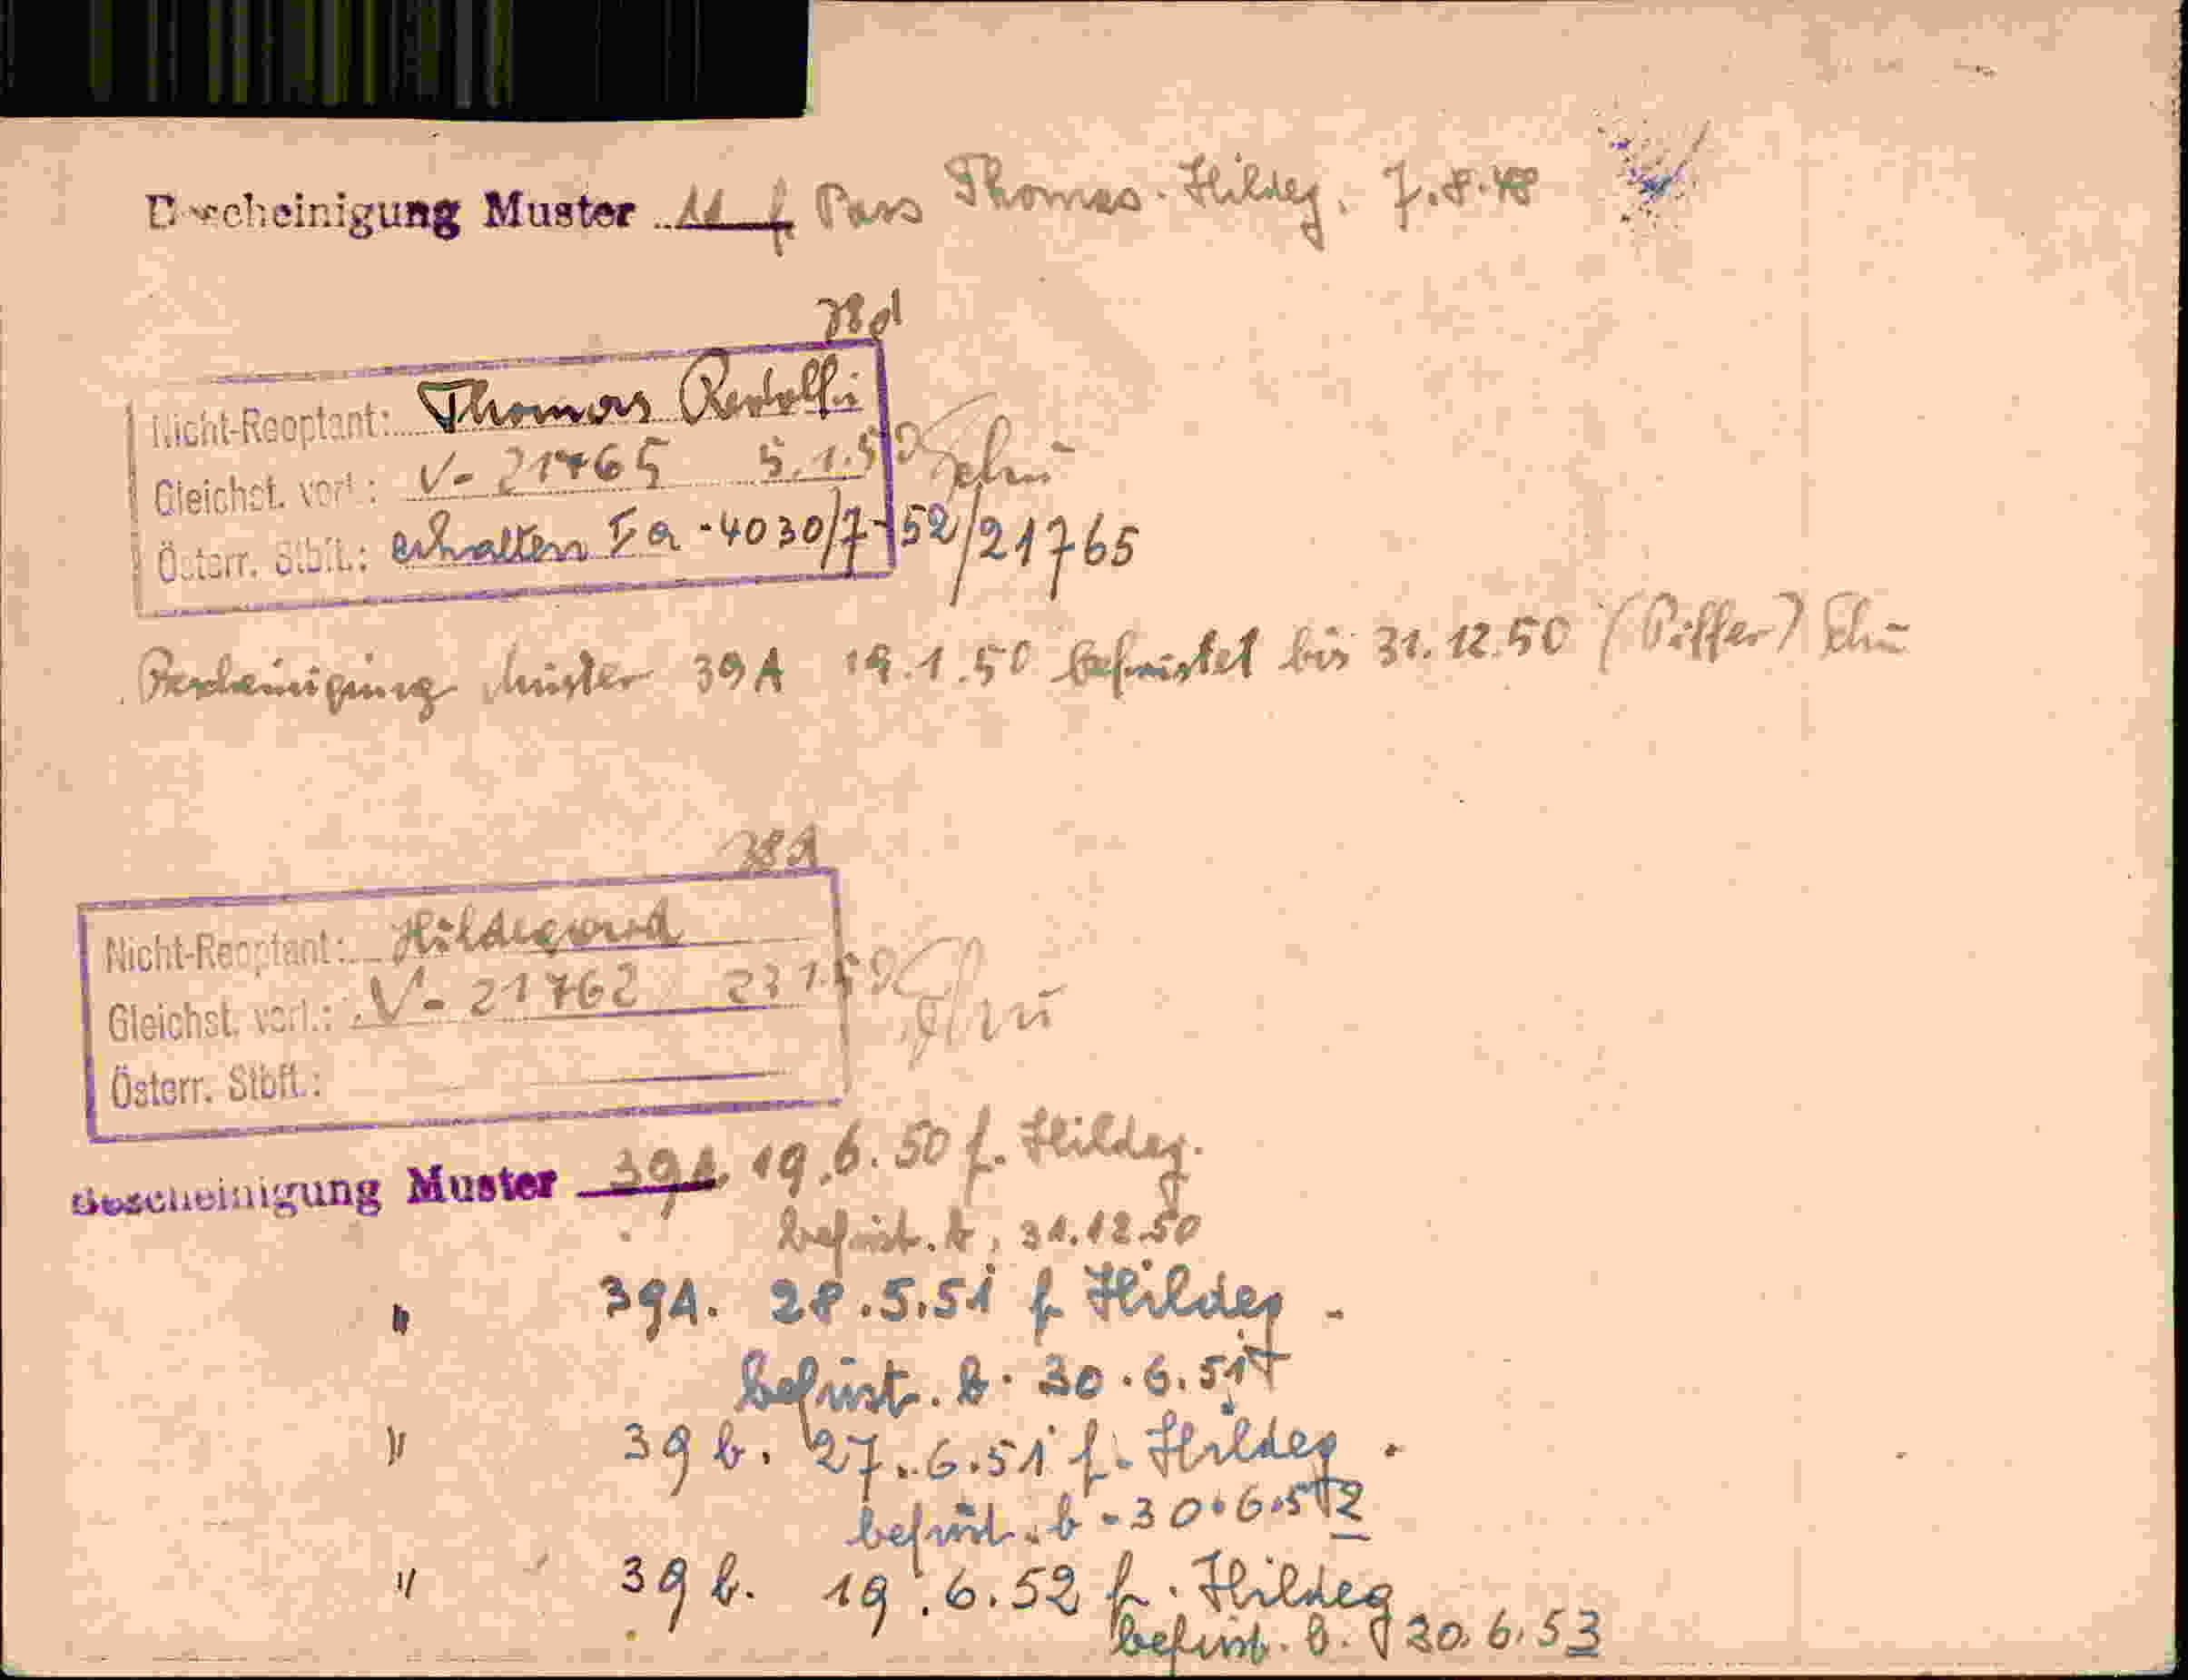 Bescheinigung Muster 11 f. Pass Thomas. Hildeg. 7.8.48
Nicht-Reoptant: Thomas
Gleichst. vorl.: V- 21765 5.1.50
Österr. Stbft.: erhalten Ia -4030/7-52/21765
Bescheinigung Muster 39A 19.1.50 befristet bis 31.12.50 (Piffer)
Nicht-Reoptant: Hildegard
Gleichst. vorl.: V- 21762
Österr. Stbft.:
Bescheinigung Muster 39A. 19.6.50 f. Hildeg.
befrist. b. 31.12.50
" 39A. 28.5.51 f Hildeg.
befrist. b. 30.6.51
" 39 b. 27.6.51 f. Hildeg.
befrist. b. 30.6.52
" 39 b. 19.6.52 f. Hildeg
befrist. b. 30.6.53